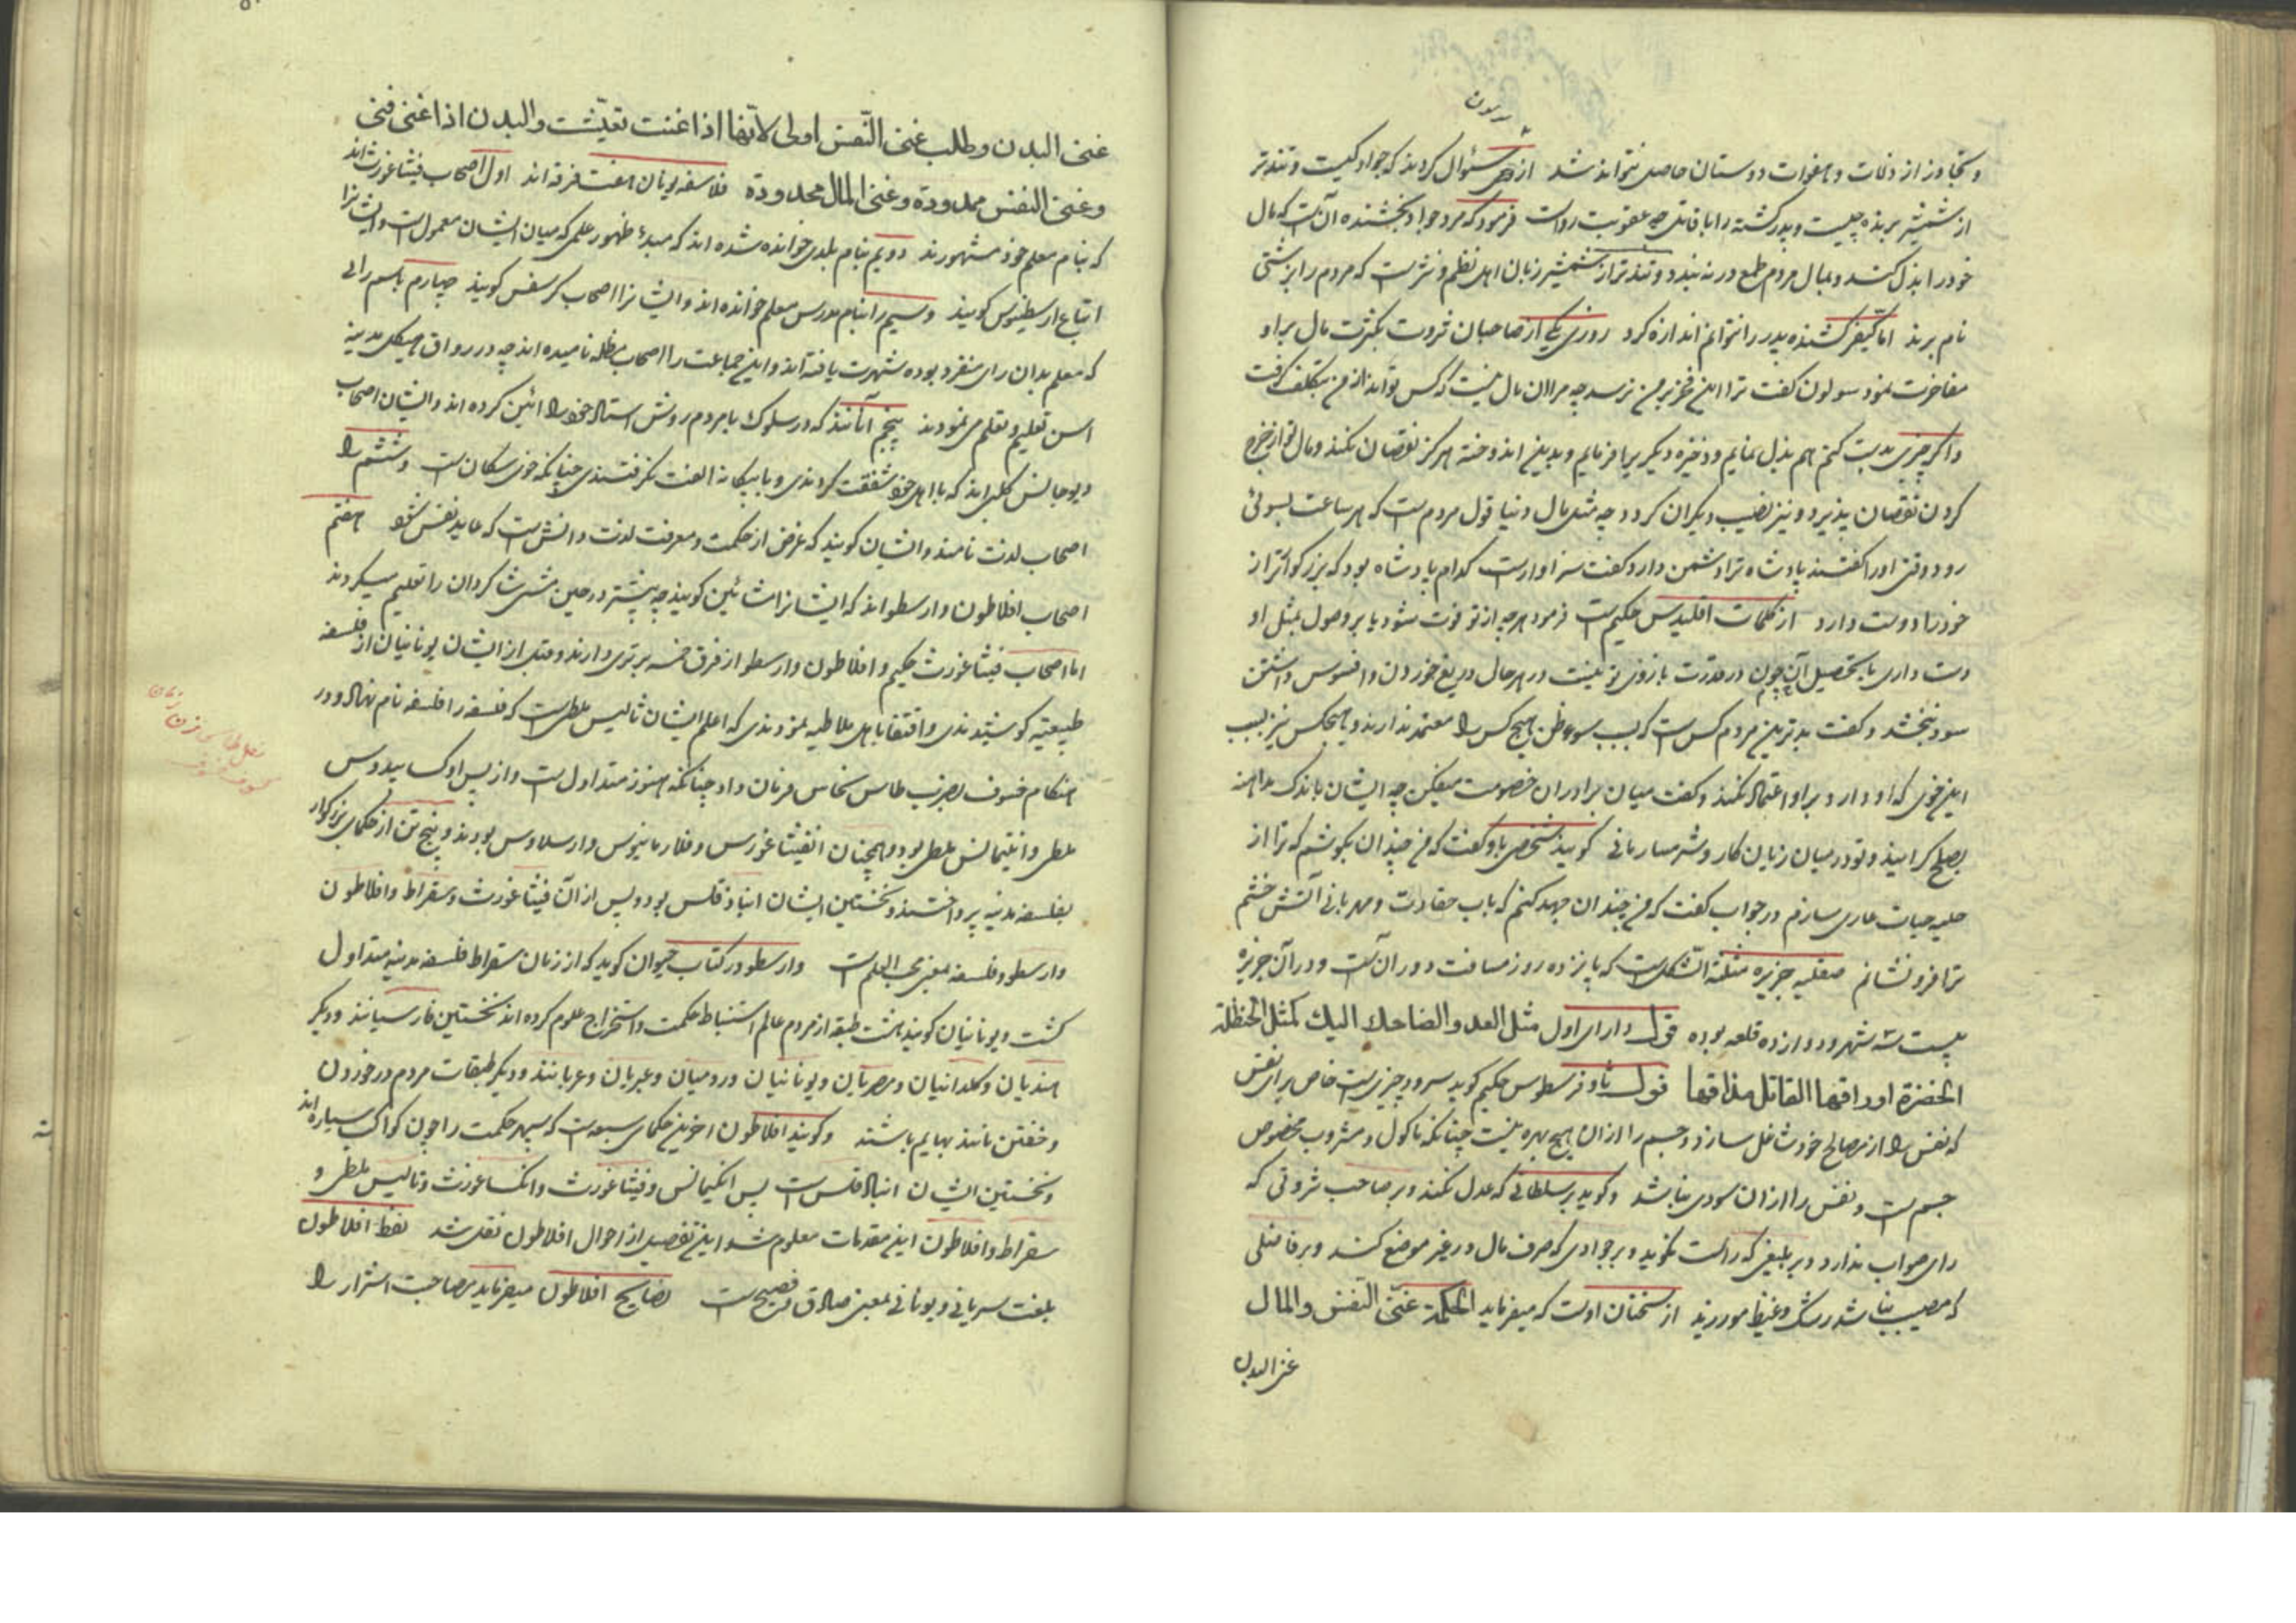 و تجاوز از ذلات و هفوات دوستان حاصل نتواند شد از وی سؤال کردند که جواد کیست و تندتر
از شمشیر برنده چیست و پدر کشته را با قاتل چه عقوبت رواست فرمود که مرد جواد بخشنده آن است که مال
خود را بذل کند و بمال مردم طمع در نه بندد و تندتر از شمشیر زبان اهل نظم و نثرست که مردم را بزشتی
نام برند اما کیفر کشنده پدر را نتوانم اندازه کرد روزی یکی از صاحبان ثروت بکثرت مال بر او
مفاخرت نمود سولون گفت ترا این فخر بر من نرسد چه مرا آن مال نیست که کس تواند از من بتکلف گرفت
و اگر چیزی بدست کنم هم بذل نمایم و ذخیره دیگر برپا فرمایم و بدین اندوخته هرگز نقصان نکند و مال تو از خرج
کردن نقصان پذیرد و نیز نصیب دیگران گردد چه مثل مال دنیا قول مردم است که هر ساعت بسوئی
رود وقتی او را گفتند پادشاه ترا دشمن دارد گفت سزاوارست کدام پادشاه بود که بزرگوارتر از
خود را دوست دارد از کلمات اقلیدس حکیم است فرمود هرچه از تو فوت شود یا بر وصول بمثل او
دست داری یا بتحصیل آن چون در قدرت بازوی تو نیست در هر حال دریغ خوردن و افسوس داشتن
سود نبخشد و گفت بدترین مردم کسی است که بسبب سوء ظن هیچ کس را معتمد ندارند و هیچکس نیز بسبب
این خوی که او دارد بر او اعتماد نکند و گفت میان برادران خصومت میفکن چه ایشان باندک مداهنه
بصلح گرایند و تو در میان زیان کار و شرمسار مانی گویند شخصی باو گفت که من چندان بکوشم که ترا از
حلیه حیات عاری سازم در جواب گفت که من چندان جهد کنم که بآب حفاوت و مهربانی آتش خشم
ترا فرو نشانم صقلیه جزیره مثلثة الشکل است که پانزده روز مسافت دوران است و در آن جزیره
بیست سه شهر و دوازده قلعه بوده قول دارای اول مثل العدو الضاحك اليك كمثل الحنظلة
الخضرة اوراقها القاتل مذاقها قول ثاوفرسطوس حکیم گوید سرود چیزیست خاص برای نفس
که نفس را از مصالح خود شاغل سازد و جسم را از آن هیچ بهره نیست چنانکه ماکول و مشروب مخصوص
جسم است و نفس را از آن سودی نباشد و گوید بر سلطانی که عدل نکند و بر صاحب ثروتی که
رای صواب ندارد و بر بلیغی که راست نگوید و بر جوادی که صرف مال در غیر موضع کند و بر فاضلی
که مصیب نباشد رشک و غبطه مورزید از سخنان اوست که میفرماید الحكمة غنى النفس والمال
غنی البدن
غنى البدن وطلب غنى النّفس اولى لانّها اذا غنت بقیت والبدن اذا غنى فنى
وغنى النفس ممدودة وغنى المال محدودة فلاسفه یونان هفت فرقه‌اند اول اصحاب فیثاغورث‌اند
که بنام معلم خود مشهورند دویم بنام بلدی خوانده شده‌اند که مبدء ظهور علمی که میان ایشان معمول است و ایشانرا
اتباع ارسطیفوس گویند و سیم را بنام مدرس معلم خوانده‌اند و ایشانرا اصحاب کرسفس گویند چهارم باسم رائی
که معلم بدان رای متفرد بوده شهرت یافته‌اند و این جماعت را اصحاب مظله نامیده‌اند چه در رواق هیکل مدینه
اسن تعلیم و تعلم می نمودند پنجم آنانند که در سلوک با مردم روش استاد خود را آئین کرده‌اند و ایشان اصحاب
دیوجانس کلبی‌اند که با اهل خود شفقت کردندی و با بیگانه الفت نگرفتندی چنانکه خوی سگان است و ششم را
اصحاب لذت نامند و ایشان گویند که غرض از حکمت و معرفت لذت دانش است که عاید نفس شود هفتم
اصحاب افلاطون و ارسطواند که ایشانرا مشائین گویند چه پیشتر در حین مشی شاگردان را تعلیم میکردند
اما اصحاب فیثاغورث حکیم و افلاطون و ارسطو از فرق خمسه برتری دارند و قبل از ایشان یونانیان از فلسفه
طبیعیه کوشیدندی و اقتفا باهل ملاطیه نمودندی که اعلم ایشان ثالیس ملطی است که فلسفه را فلسفه نام نهاد و در
هنگام خسوف بضرب طاس نحاس فرمان داد چنانکه هنوز متداول است و از پس او کسایدوس
ملطی و انکیمانس ملطی بود و همچنان انقیثاغورس و فلارمانیوس و ارسلاوس بودند و پنج تن از حکمای بزرگوار
بفلسفه مدنیه پرداختند و نخستین ایشان انباذقلس بود و پس از آن فیثاغورث و سقراط و افلاطون
و ارسطو و فلسفه بمعنی محب الحکمه است و ارسطو در کتاب حیوان گوید که از زمان سقراط فلسفه مدنیه متداول
گشت و یونانیان گویند هشت طبقه از مردم عالم استنباط حکمت و استخراج علوم کرده‌اند نخستین فارسیانند و دیگر
هندیان و کلدانیان و مصریان و یونانیان و رومیان و عبریان و عربانند و دیگر طبقات مردم در خوردن
و خفتن مانند بهایم باشند و گویند افلاطون آخرین حکمای سبعه است که سپهر حکمت را چون کواکب سیاره‌اند
و نخستین ایشان انبادقلس است پس انکیمانس و فیثاغورث و انکساغورث و ثالیس ملطی و
سقراط و افلاطون این مقدمات معلوم شد و این تفصیل از احوال افلاطون نقل شد لفظ افلاطون
بلغت سریانی و یونانی بمعنی صادق فصیح است نصایح افلاطون میفرماید مصاحبت اشرار را